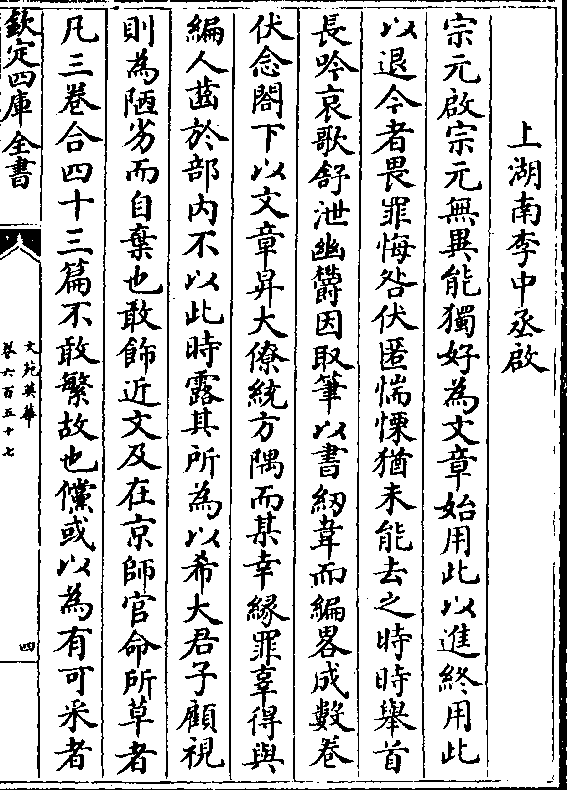 上湖南李中丞啟
宗元啟宗元無異能獨好為文章始用此以進終用此
以退今者畏罪悔咎伏匿惴慄猶未能去之時時舉首
長吟哀歌舒泄幽鬱因取筆以書紉韋而編畧成數卷
伏念閣下以文章昇大僚統方隅而某幸緣罪辜得與
編人齒於部内不以此時露其所為以希大君子顧視
則為陋劣而自棄也敢飾近文及在京師官命所草者
凡三卷合四十三篇不敢繁故也儻或以為有可釆者
欽定四庫全書
文苑英華
卷六百五十七
四